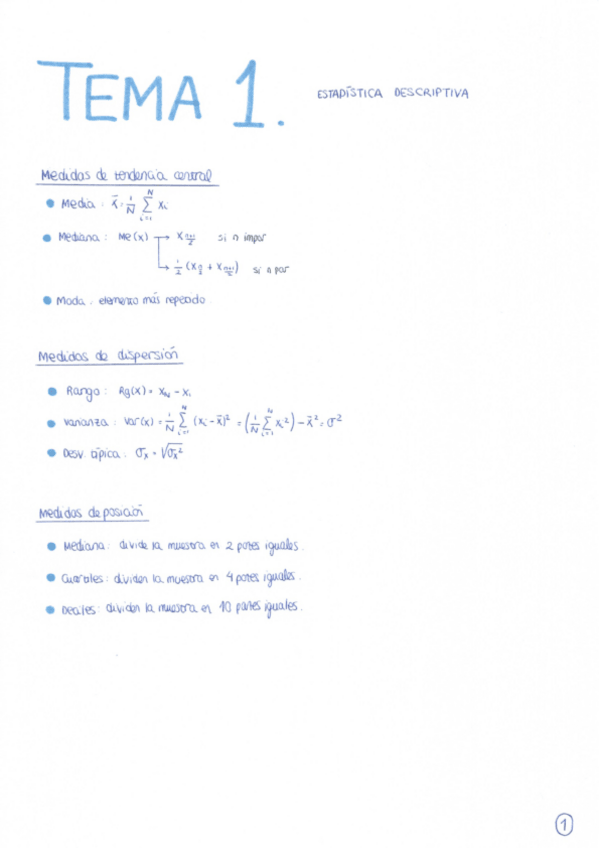 TEMA 1.
ESTADÍSTICA DESCRIPTIVA
Medidas de tendencia central
• Media: x̄ = 1/N ∑_{i=1}^{N} xᵢ
• Mediana: Me(x) → x_{(n+1)/2} si n impar
→ 1/2 (x_{n/2} + x_{(n+1)/2}) si n par
• Moda: elemento más repetido.
Medidas de dispersión
• Rango: Rg(x) = x_N - x₁
• Varianza: Var(x) = 1/N ∑_{i=1}^{N} (xᵢ - x̄)² = (1/N ∑_{i=1}^{N} xᵢ²) - x̄² = σ²
• Desv. típica: σₓ = √σₓ²
Medidas de posición
• Mediana: divide la muestra en 2 partes iguales.
• Cuartiles: dividen la muestra en 4 partes iguales.
• Deciles: dividen la muestra en 10 partes iguales.
1